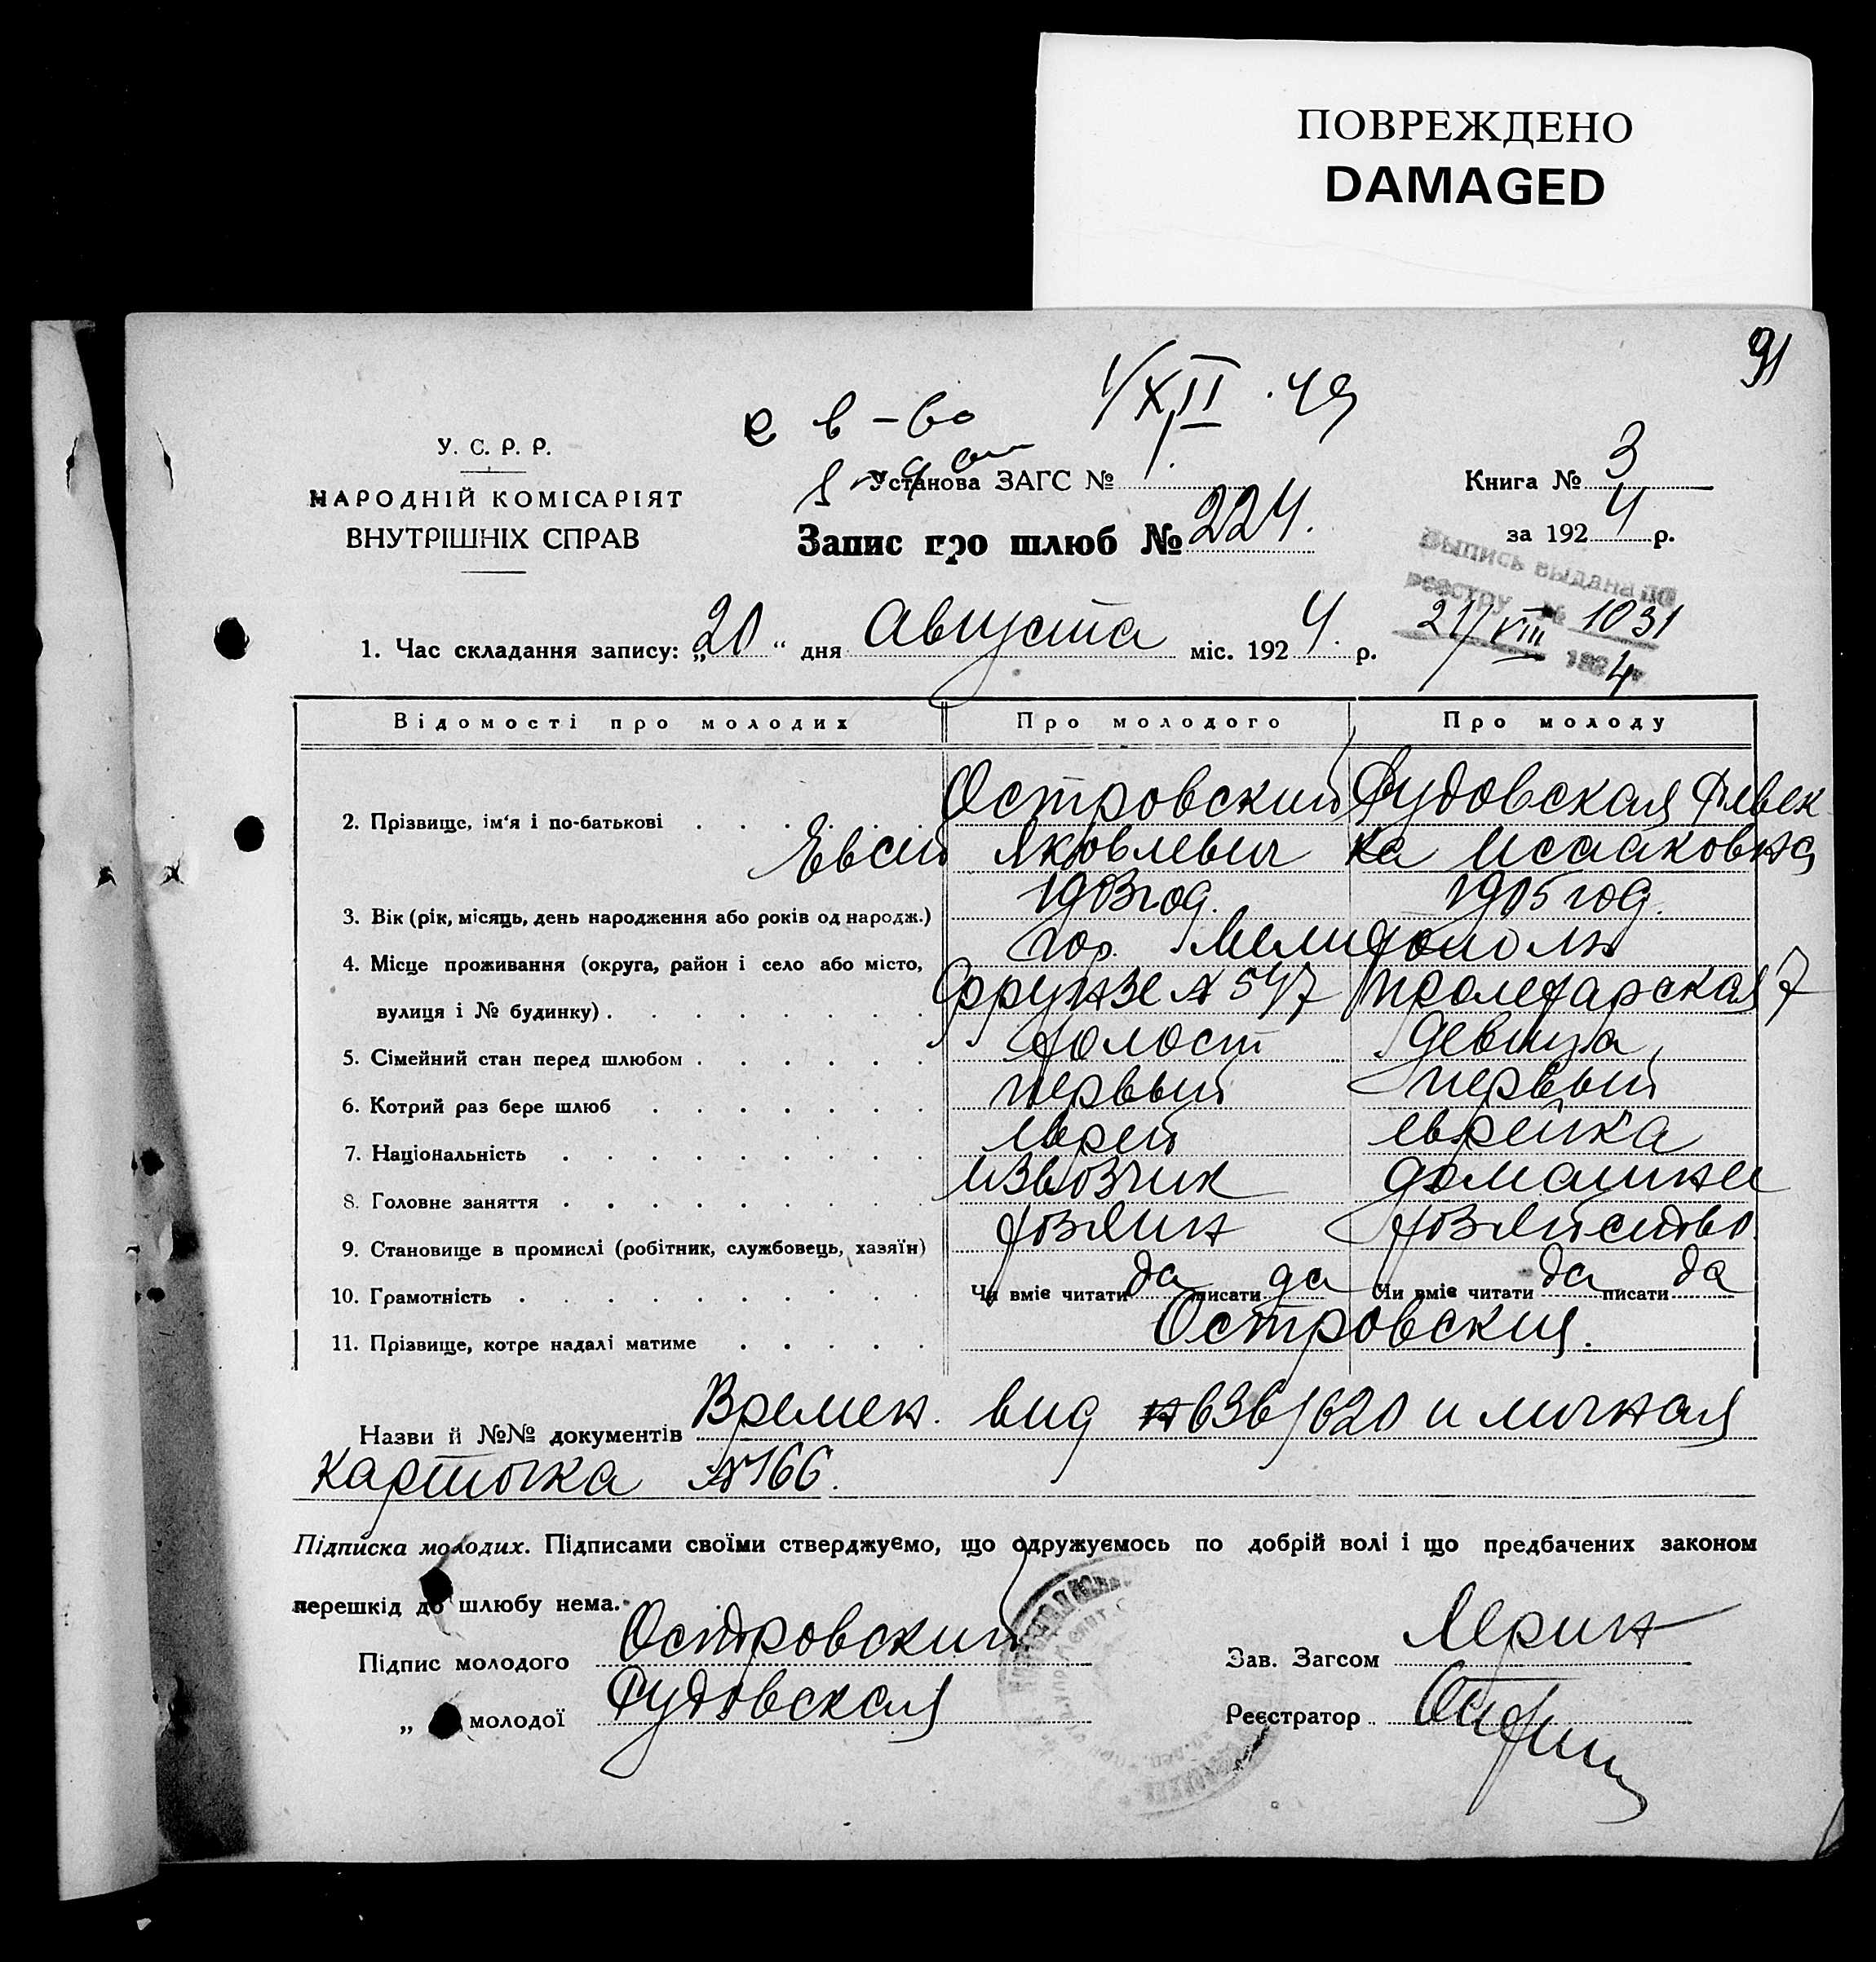 ПОВРЕЖДЕНО
DAMAGED
91
1/XII .49
У. С. Р. Р.
НАРОДНІЙ КОМІСАРІЯТ
ВНУТРІШНІХ СПРАВ
Установа ЗАГС №
Книга № 3
за 1924 р.
Запис про шлюб № 224.
Выпись выдана по
реестру № 1031
21/VIII 1924
1. Час складання запису: „20“ дня Августа міс. 1924 р.
Відомості про молодих Про молодого Про молоду
2. Прізвище, ім'я і по-батькові Островский
Евсей Яковлевич ка Исааковна
3. Вік (рік, місяць, день народження або років од народж.) 1903 год. 1905 год.
4. Місце проживання (округа, район і село або місто, гор. Мелитополь
вулиця і № будинку) Фрунзе № Пролетарская 7
5. Сімейний стан перед шлюбом холост девица
6. Котрий раз бере шлюб первый первый
7. Національність еврей еврейка
8. Головне заняття извозчик домашнее
9. Становище в промислі (робітник, службовець, хазяїн) хозяин хозяйство.
10. Грамотність Чи вміє читати да писати да Чи вміє читати да писати да
11. Прізвище, котре надалі матиме Островския.
Назви й №№ документів Времен. вид № 636/620 и личная
карточка № 166.
Підписка молодих. Підписами своїми стверджуємо, що одружуємось по добрій волі і що предбачених законом
перешкід до шлюбу нема.
Підпис молодого Островский
Зав. Загсом
„ молодої
Реєстратор